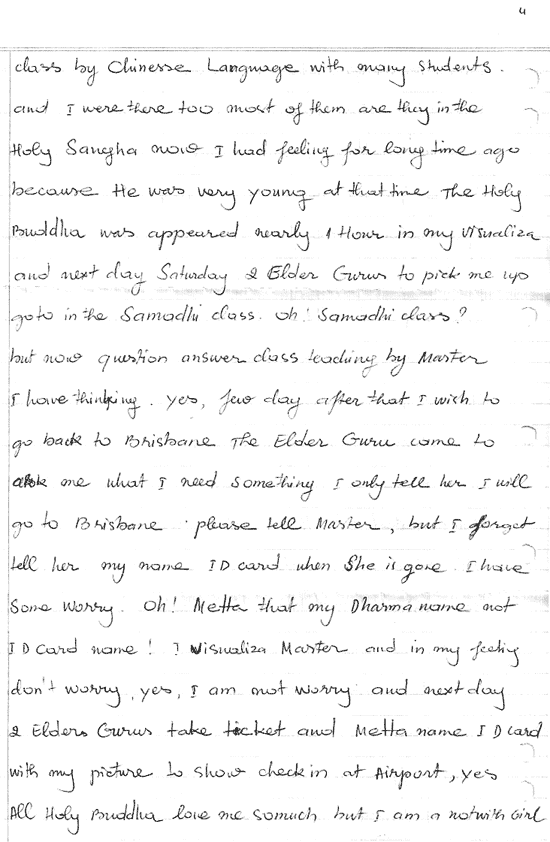 4
class by Chinesse Language with many students.
and I were there too most of them are they in the
Holy Sangha now I had feeling for long time ago
because He was very young at that time The Holy
Buddha was appeared nearly 1 Hour in my visualiza
and next day Saturday 2 Elder Gurus to pick me up
go to in the Samadhi class. oh! Samadhi class?
but now question answer class teaching by Master
I have thinking. yes, few day after that I wish to
go back to Brisbane The Elder Guru come to
ask me what I need something I only tell her I will
go to Brisbane please tell Master, but I forget
tell her my name ID card when She is gone I have
Some Worry. Oh! Metta that my Dharma name not
ID card name! I Visualiza Master and in my feeling
don't worry, yes, I am not worry and next day
2 Elders Gurus take ticket and Metta name ID card
with my picture to show check in at Airport, yes
All Holy Buddha love me somuch but I am a notwith Girl